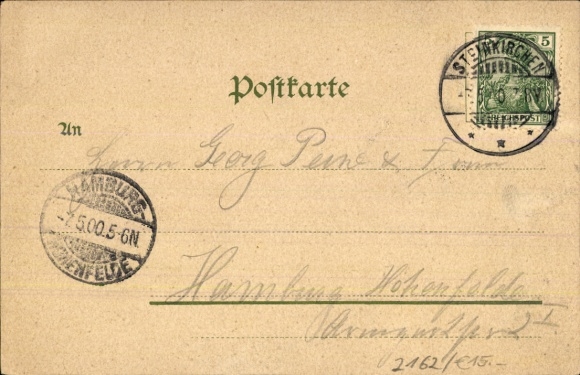 5
STEINKIRCHEN
REICHSPOST
Postkarte
An
Herrn Georg Peine & Frau
HAMBURG-
-7.5.00.5-6N.
HOHENFELDE
Hamburg Hohenfelde
2 I
2162/€15.-